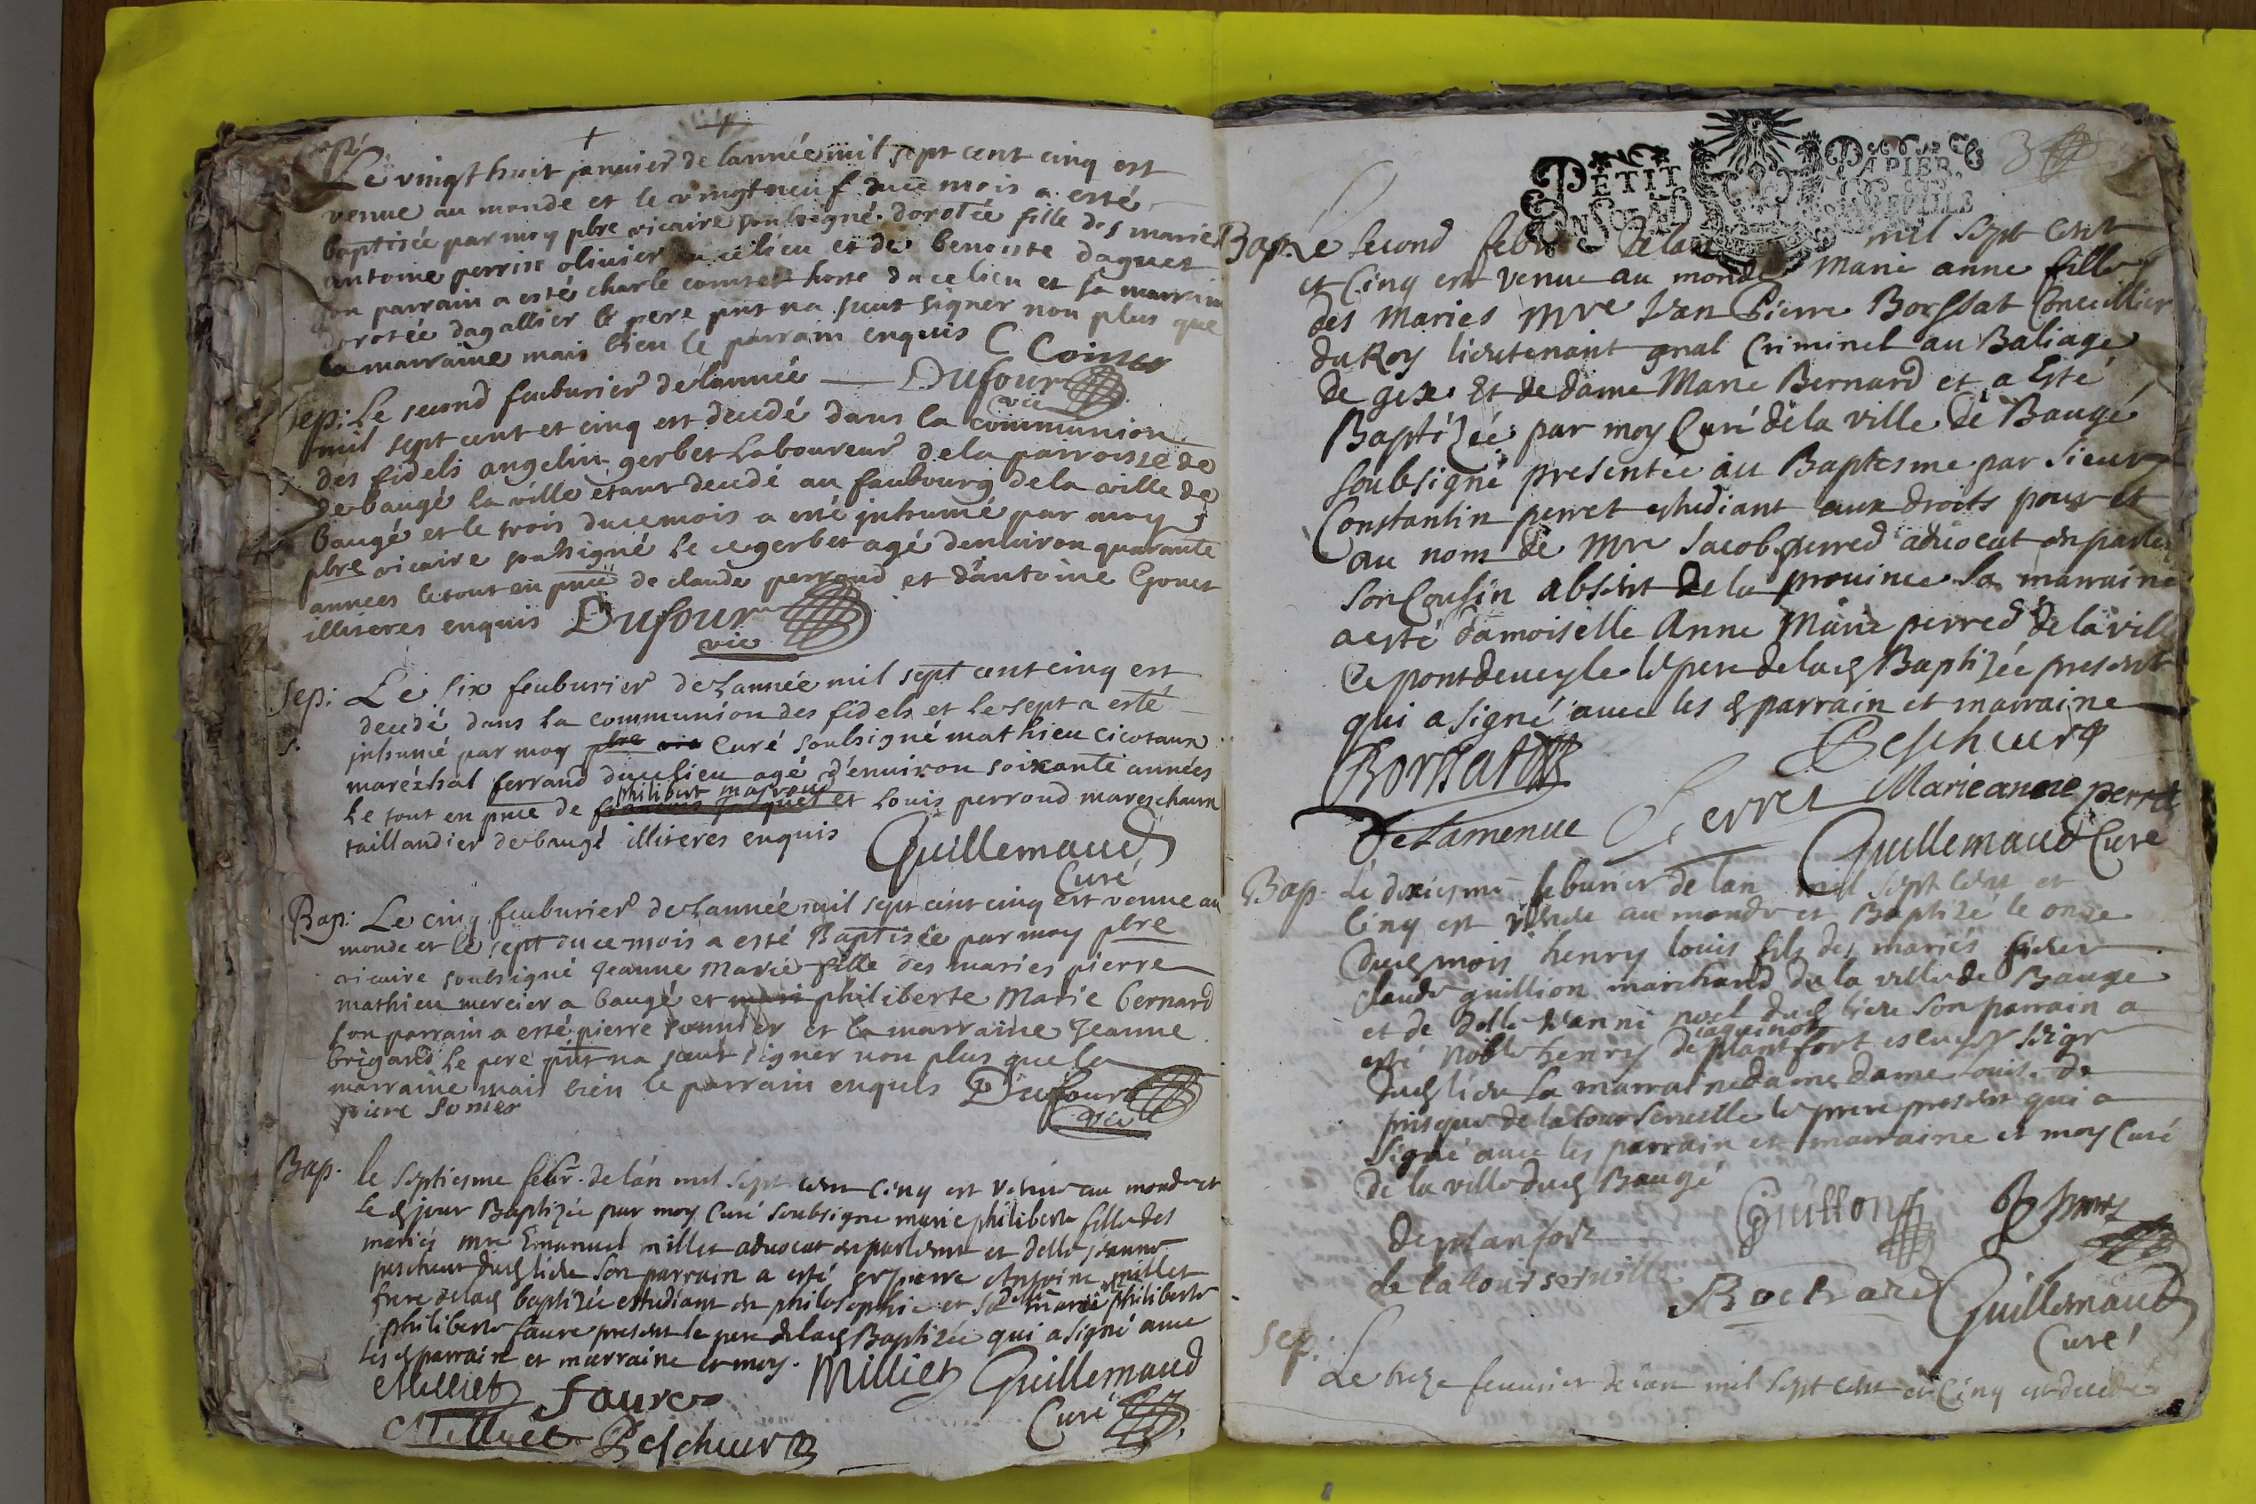 Le vingt huit janvier de lannée mil sept cent cinq est
venue au monde et le vingt neuf du ce mois a esté
baptisée par moy pbre vicaire soubsigné dorotée fille des mariés
antoine perrin olivier ce lieu et de benoite daguet
son parrain a esté charle hoste du ce lieu et sa marraine
dorotée dagallier le pere pnt na sceut signer non plus que
la marraine mais bien le parrain enquis C Comte
Dufour
vic
Sep: Le second feuburier de lannée
mil sept cent et cinq est decedé dans la communion
des fidels angelin gerbet laboureur de la parroisse de
de baugé la ville etant decedé au faubourg de la ville de
baugé et le trois du ce mois a esté inhumé par moy
pbre vicaire soubsigné le ce gerbet agé denuiron quarante
annees le tout en pnce de claude perroud et dantoine Gonet
illiteres enquis Dufour
vic
Sep: Le six feuburier de lannée mil sept cent cinq est
decedé dans la communion des fidels et le sept a esté
inhumé par moy pbre vic Curé soubsigné mathieu cicotaux
maréchal ferrand du ce lieu agé d'enuiron soixante années
philibert
le tout en pnce de et Louis perroud mareschaux
taillandier de baugé illiteres enquis
Guillemaud
Curé
Bap: Le cinq feuburier de Lannée mil sept cent cinq est venue au
monde et le sept du ce mois a esté Baptisée par moy pbre
vicaire soubsigné Jeanne Marie fille des maries pierre
mathieu mercier a baugé et philiberte Marie bernard
son parrain a esté pierre sonnier et la marraine Jeanne
brigand le pere pnt na sceut signer non plus que la
marraine mais bien le parrain enquis Dufour
piere sonier
vic
Bap. le septiesme febr. de lan mil sept cent cinq est venue au monde et
Le d jour Baptizée par moy Curé soubsigne marie philiberte fille des
mariés mre Emanuel millet aduocat en parlemt et delle jeanne
pescheur dud lieu son parrain a esté Antoine millet
frere de lad baptizée estudiant en philosophie et sa marie philiberte
philiberte faure present le pere de lad Baptizée qui a signé auec
les d parrain et marraine et moy.
Milliet Faure Milliet Guillemaud
Milliet Pescheur Curé
PETIT PAPIER
3
Bap. Le second febr de lan mil sept cent
et Cinq est venue au monde Marie anne fille
des maries mre Jean Pierre Borssat Conseillier
du Roy lieutenant gnal Criminel au Baliage
de gex Et de dame Marie Bernard et a Esté
Baptizée par moy Curé de la ville de Baugé
soubsigné presentée au Baptesme par sieur
Constantin perret estudiant aux droits pour et
au nom de mre Jacob perred aduocat en parlem
son Cousin absent de la prouince sa marraine
a esté damoiselle Anne Marie perred de la ville
de pontdeueyle le pere de lad Baptizée present
qui a signé auec les d parrain et marraine
Borssat Pescheur
Marie anne perret
Delamenue Perret
Guillemaud Curé
Bap. Le dixiesme feburier de lan mil sept cent et
cinq est venu au monde et Baptizé le onze
dud mois henry louis fils des mariés sieur
claude guillion marchand de la ville de Bauge
et de delle noel dud lieu son parrain a
jaquinot
esté noble henry de plantfort escuyer seigr
dud lieu sa marraine dame dame louise de
de la tour seruelle le pere present qui a
signé auec les parrain et marraine et moy Curé
de la ville dud Baugé
deplanfort Guillon
de la tour seruille
Guillemaud
Curé
Sep. Le treze feuurier de lan mil sept cent et Cinq est decedé